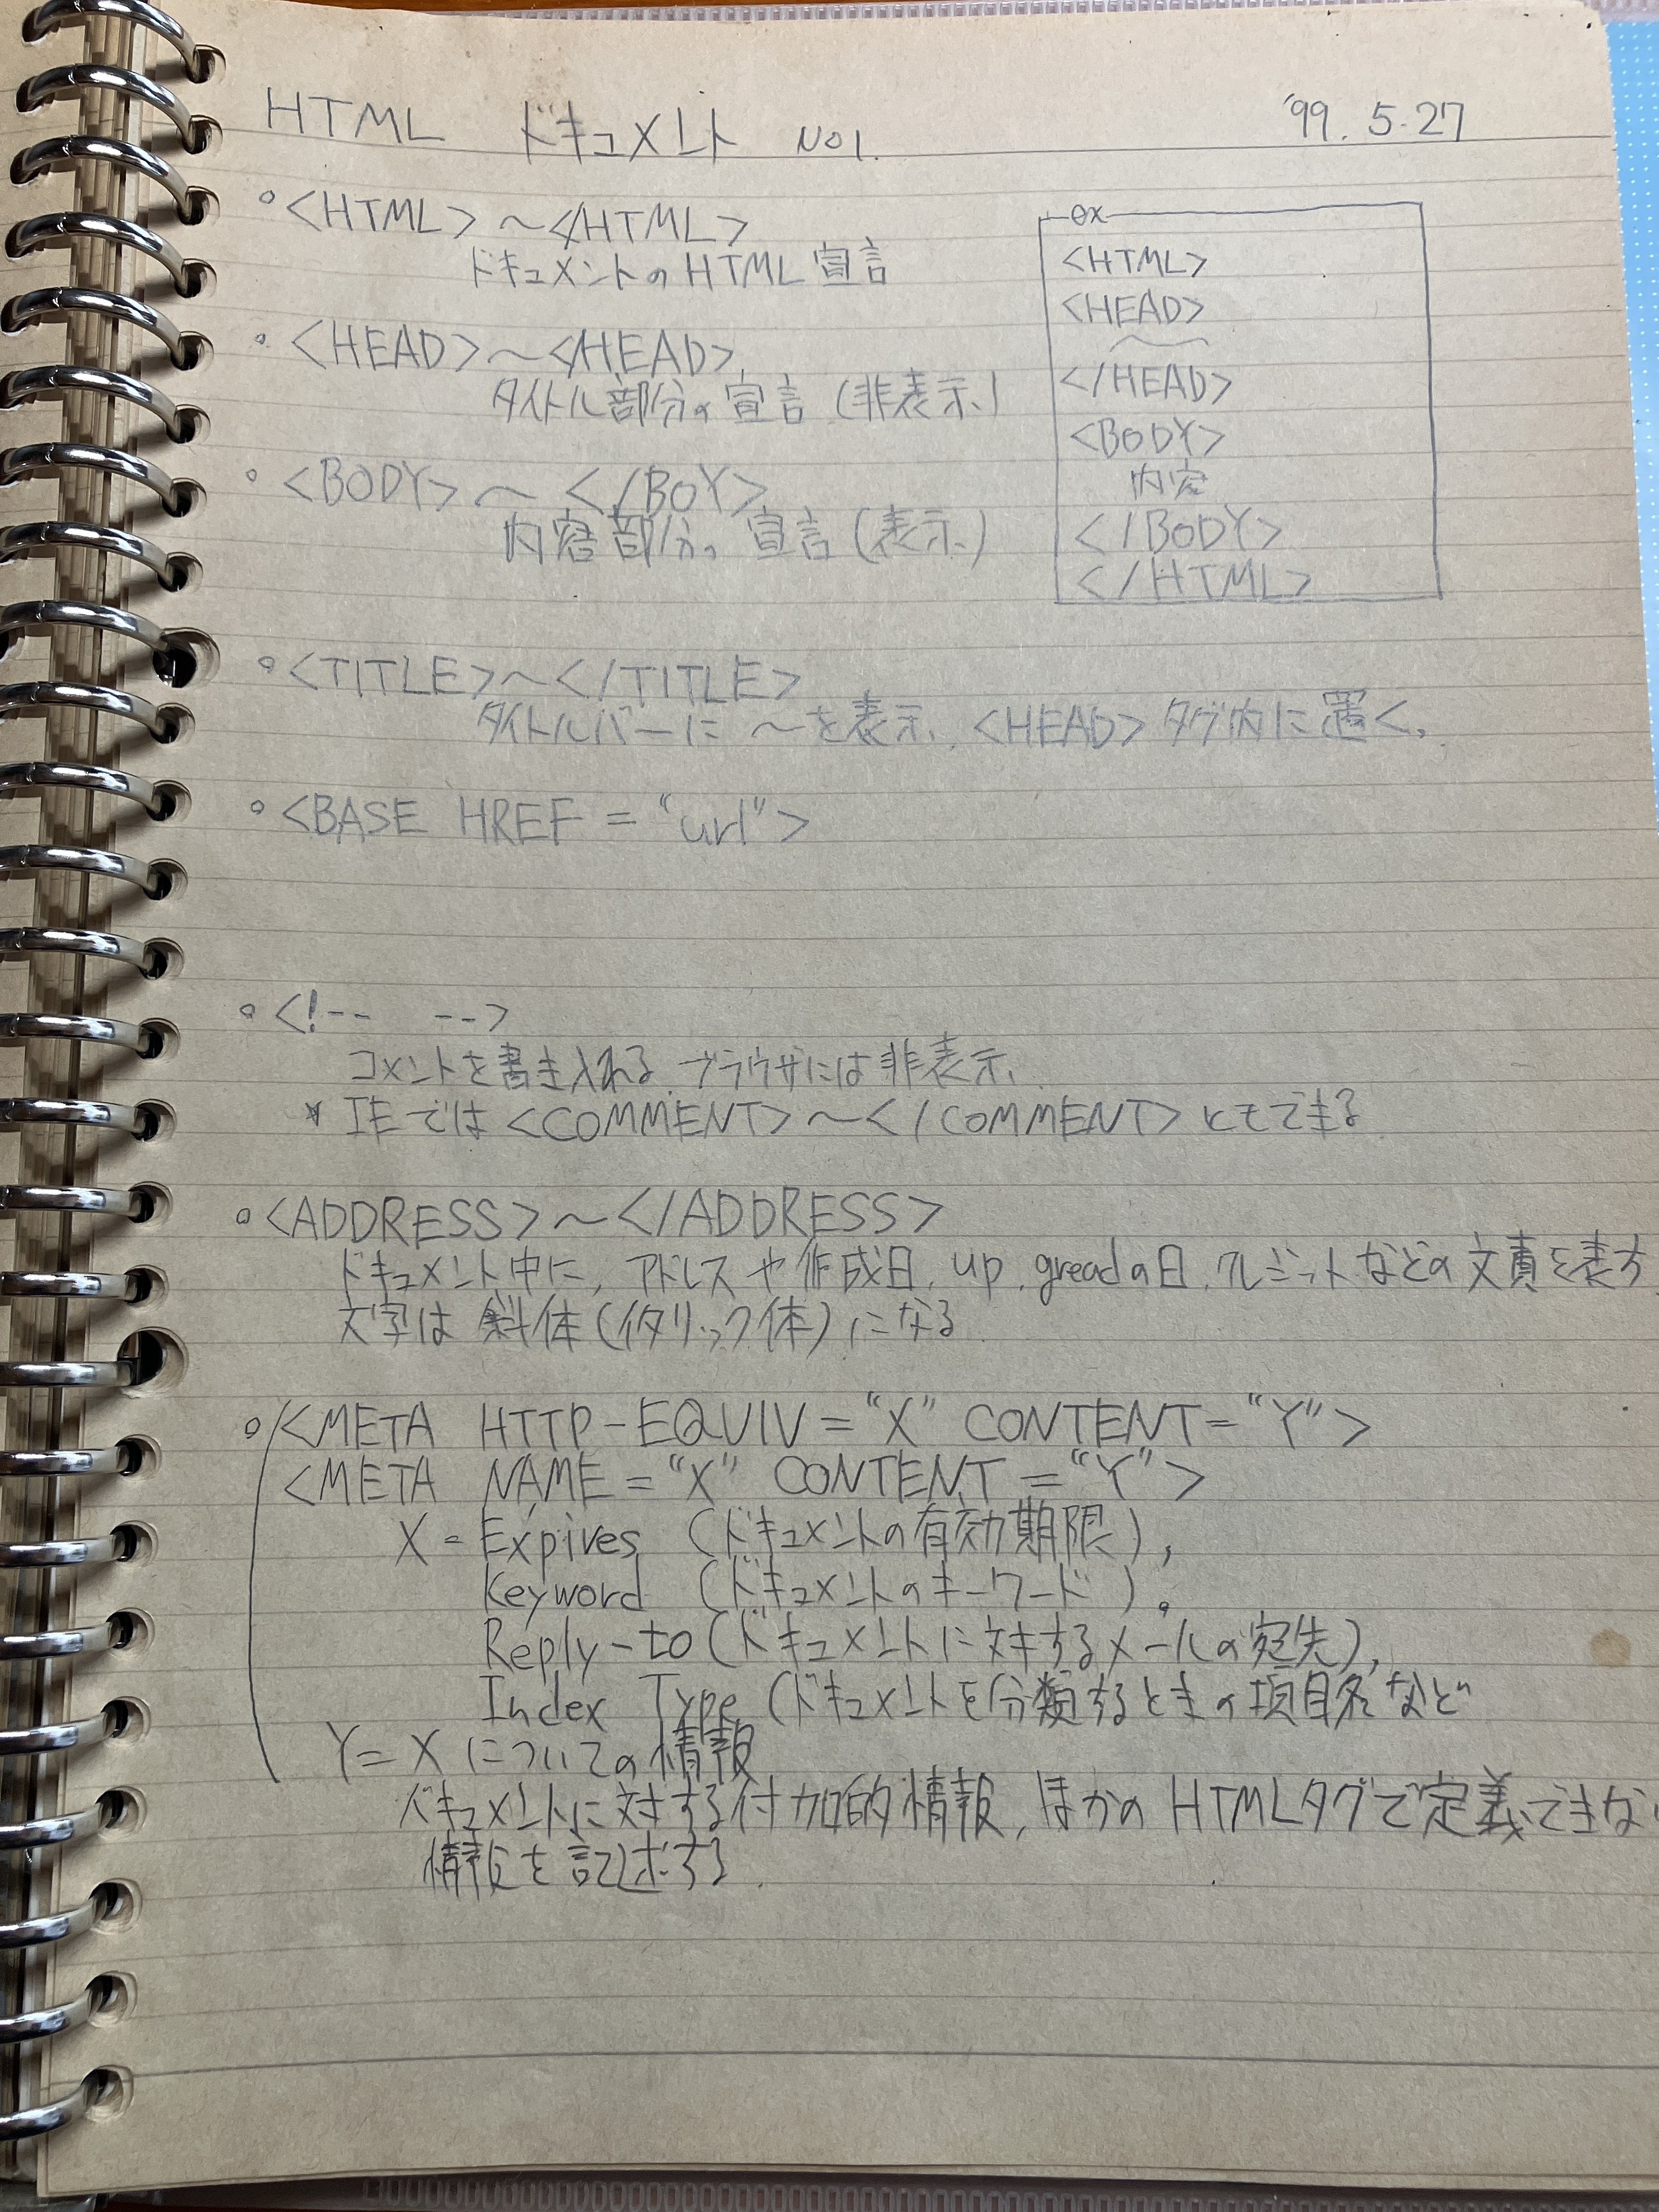 HTML ドキュメント NO1. '99. 5.27
。<HTML>~</HTML>
ドキュメントのHTML宣言
。<HEAD>~</HEAD>
タイトル部分の宣言(非表示)
。<BODY>~</BOY>
内容部分の宣言(表示)
ex
<HTML>
<HEAD>
~
</HEAD>
<BODY>
内容
</BODY>
</HTML>
。<TITLE>~</TITLE>
タイトルバーに~を表示. <HEAD>タグ内に置く.
。<BASE HREF="url">
。<!-- -->
コメントを書き入れる.ブラウザには非表示.
* IEでは<COMMENT>~</COMMENT>ともできる
。<ADDRESS>~</ADDRESS>
ドキュメント中に,アドレスや作成日,up.greadの日,クレジットなどの文責を表す.
文字は斜体(イタリック体)になる
。<META HTTP-EQUIV="X" CONTENT="Y">
<META NAME="X" CONTENT="Y">
X=Expives (ドキュメントの有効期限),
Keyword (ドキュメントのキーワード)。
Reply-to(ドキュメントに対するメールの宛先),
Index Type (ドキュメントを分類するときの項目名など
Y=Xについての情報
ドキュメントに対する付加的情報,ほかのHTMLタグで定義できない
情報を記述する.